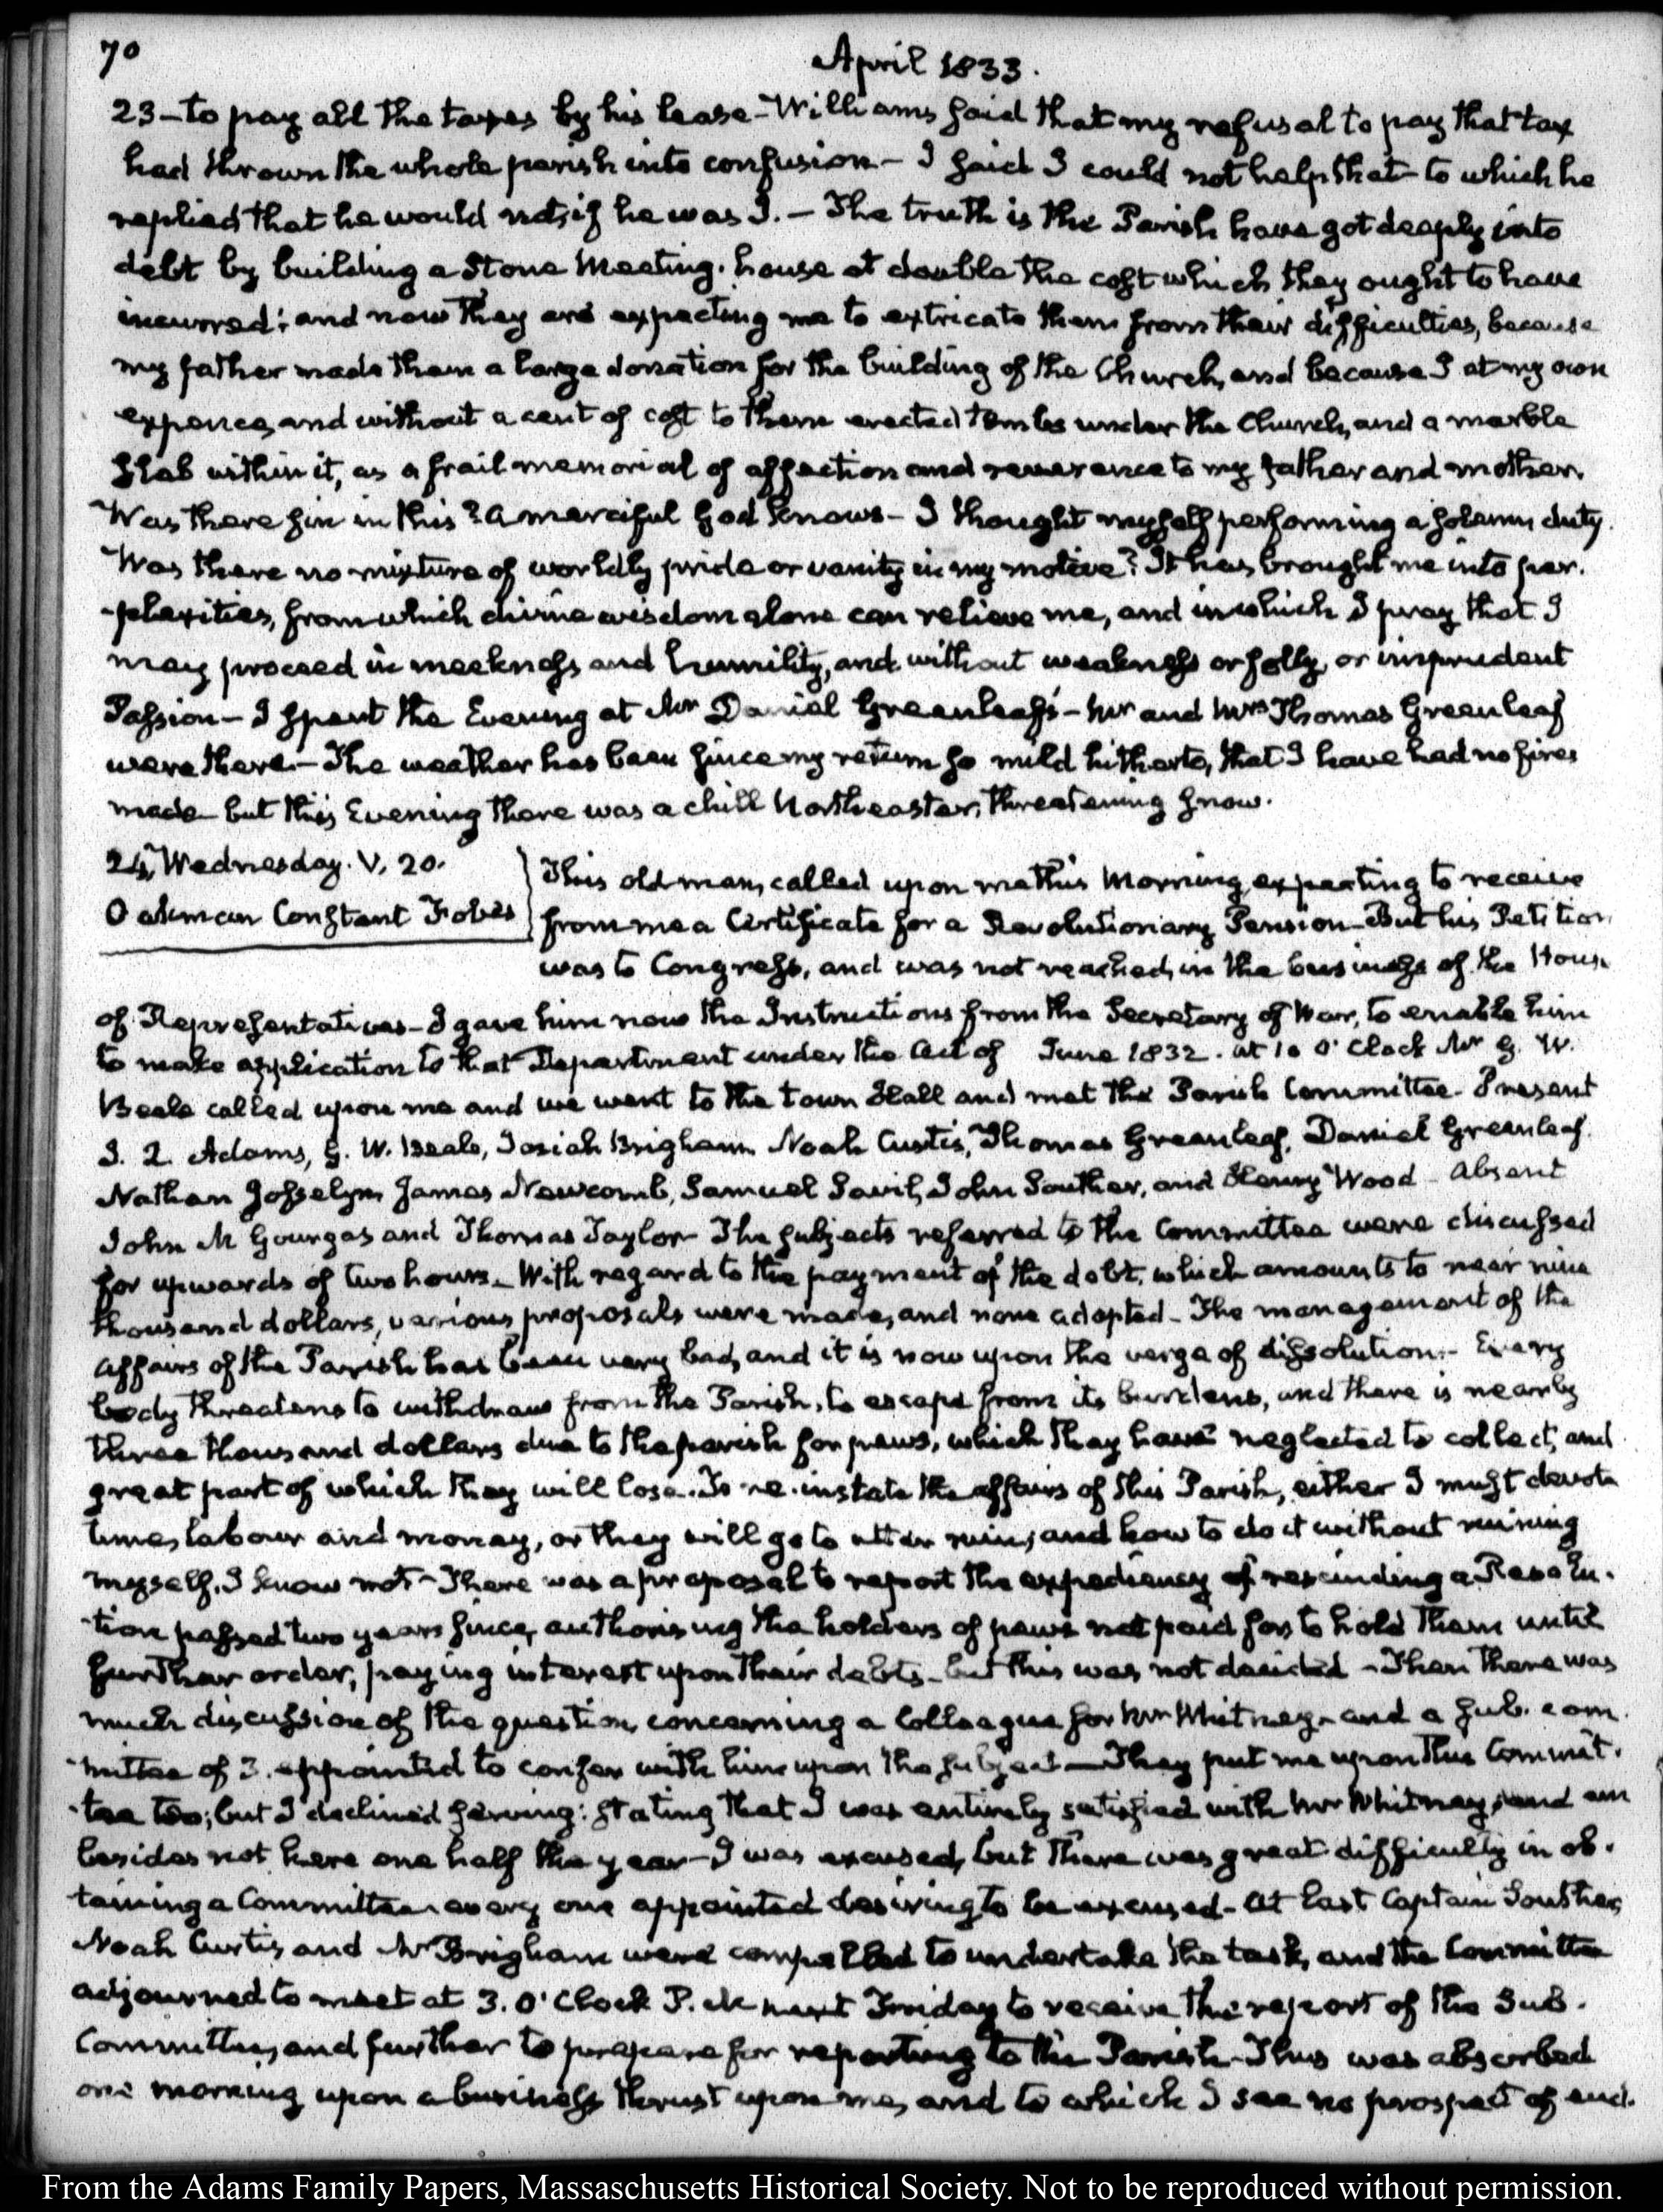 70
April 1833.
23 – to pay all the taxes by his lease – Williams said that my refusal to pay that tax
had thrown the whole parish into confusion – I said I could not help that – to which he
replied that he would not, if he was I. – The truth is the Parish have got deeply into
debt by building a Stone Meeting-house at double the cost which they ought to have
incurred; and now they are expecting me to extricate them from their difficulties, because
my father made them a large donation for the building of the Church, and because I at my own
expence, and without a cent of cost to them erected tombs under the Church, and a marble
Slab within it, as a frail memorial of affection and reverence to my father and mother.
Was there sin in this? A merciful God knows – I thought myself performing a solemn duty.
Was there no mixture of worldly pride or vanity in my motive? It has brought me into per-
-plexities, from which divine wisdom alone can relieve me, and in which I pray that I
may proceed in meekness and humility, and without weakness or folly, or imprudent
Passion – I spent the Evening at Mr Daniel Greenleaf's – Mr and Mrs Thomas Greenleaf
were there. – The weather has been since my return so mild hitherto, that I have had no fires
made – but this Evening there was a chill Northeaster, threatening snow.
24. Wednesday. V. 20.
Oakman Constant Fobes
This old man, called upon me this Morning, expecting to receive
from me a Certificate for a Revolutionary Pension – But his Petition
was to Congress, and was not reached, in the business of the House
of Representatives – I gave him now the Instructions from the Secretary of War, to enable him
to make application to that Department under the Act of June 1832. At 10 O'Clock Mr G. W.
Beale called upon me and we went to the Town Hall and met the Parish Committee. Present
J. Q. Adams, G. W. Beale, Josiah Brigham, Noah Curtis, Thomas Greenleaf, Daniel Greenleaf.
Nathan Josselyn, James Newcomb, Samuel Savil, John Souther, and Henry Wood – Absent
John M Gourgas and Thomas Taylor – The subjects referred to the Committee were discussed
for upwards of two hours – With regard to the payment of the debt, which amounts to near nine
thousand dollars, various proposals were made, and none adopted – The management of the
affairs of the Parish has been very bad, and it is now upon the verge of dissolution – Every
body threatens to withdraw from the Parish, to escape from its burdens, and there is nearly
three thousand dollars due to the parish for pews, which they have neglected to collect, and
great part of which they will lose. To re-instate the affairs of this Parish, either I must devote
time, labour and money, or they will go to utter ruin; and how to do it without ruining
myself, I know not – There was a proposal to report the expediency of rescinding a Resolu-
-tion passed two years since, authorising the holders of pews not paid for, to hold them until
further order, paying interest upon their debts – but this was not decided – Then there was
much discussion of the question, concerning a Colleague for Mr Whitney – and a sub-com
-mittee of 3. appointed to confer with him upon the subject – They put me upon this Commit-
-tee too; but I declined serving: stating that I was entirely satisfied with Mr Whitney, and am
besides not here one half the year – I was excused, but there was great difficulty in ob-
taining a Committee – every one appointed desiring to be excused – At last Captain Souther,
Noah Curtis, and Mr Brigham were compelled to undertake the task, and the Committee
adjourned to meet at 3. O'Clock P.M. next Friday to receive the report of the Sub-
Committee, and further to prepare for reporting to the Parish – Thus was absorbed
one morning upon a business thrust upon me, and to which I see no prospect of end.
From the Adams Family Papers, Massachusetts Historical Society. Not to be reproduced without permission.